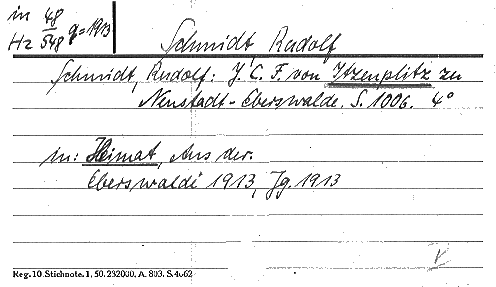 in 48
Hz 548 q=1913
Schmidt Rudolf
Schmidt, Rudolf: J. C. F. von Itzenplitz zu
Neustadt-Eberswalde. S. 1006. 4°
in: Heimat, Aus der.
Eberswalde 1913, Jg. 1913
Reg. 10. Stichnote. 1, 50. 232000, A. 803. S. 4662